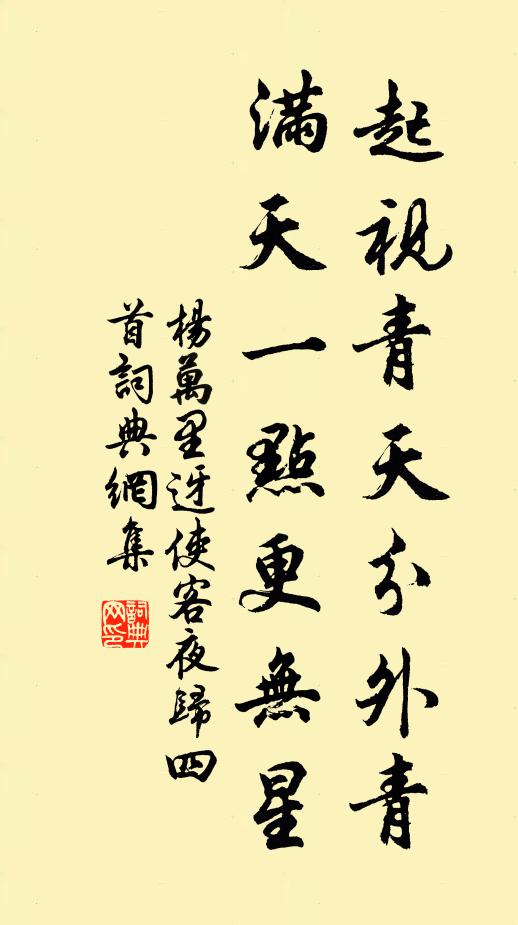 起視青天分外青
滿天一點更無星
楊萬里迓使客夜歸四
首詞典網集
詞典
网印